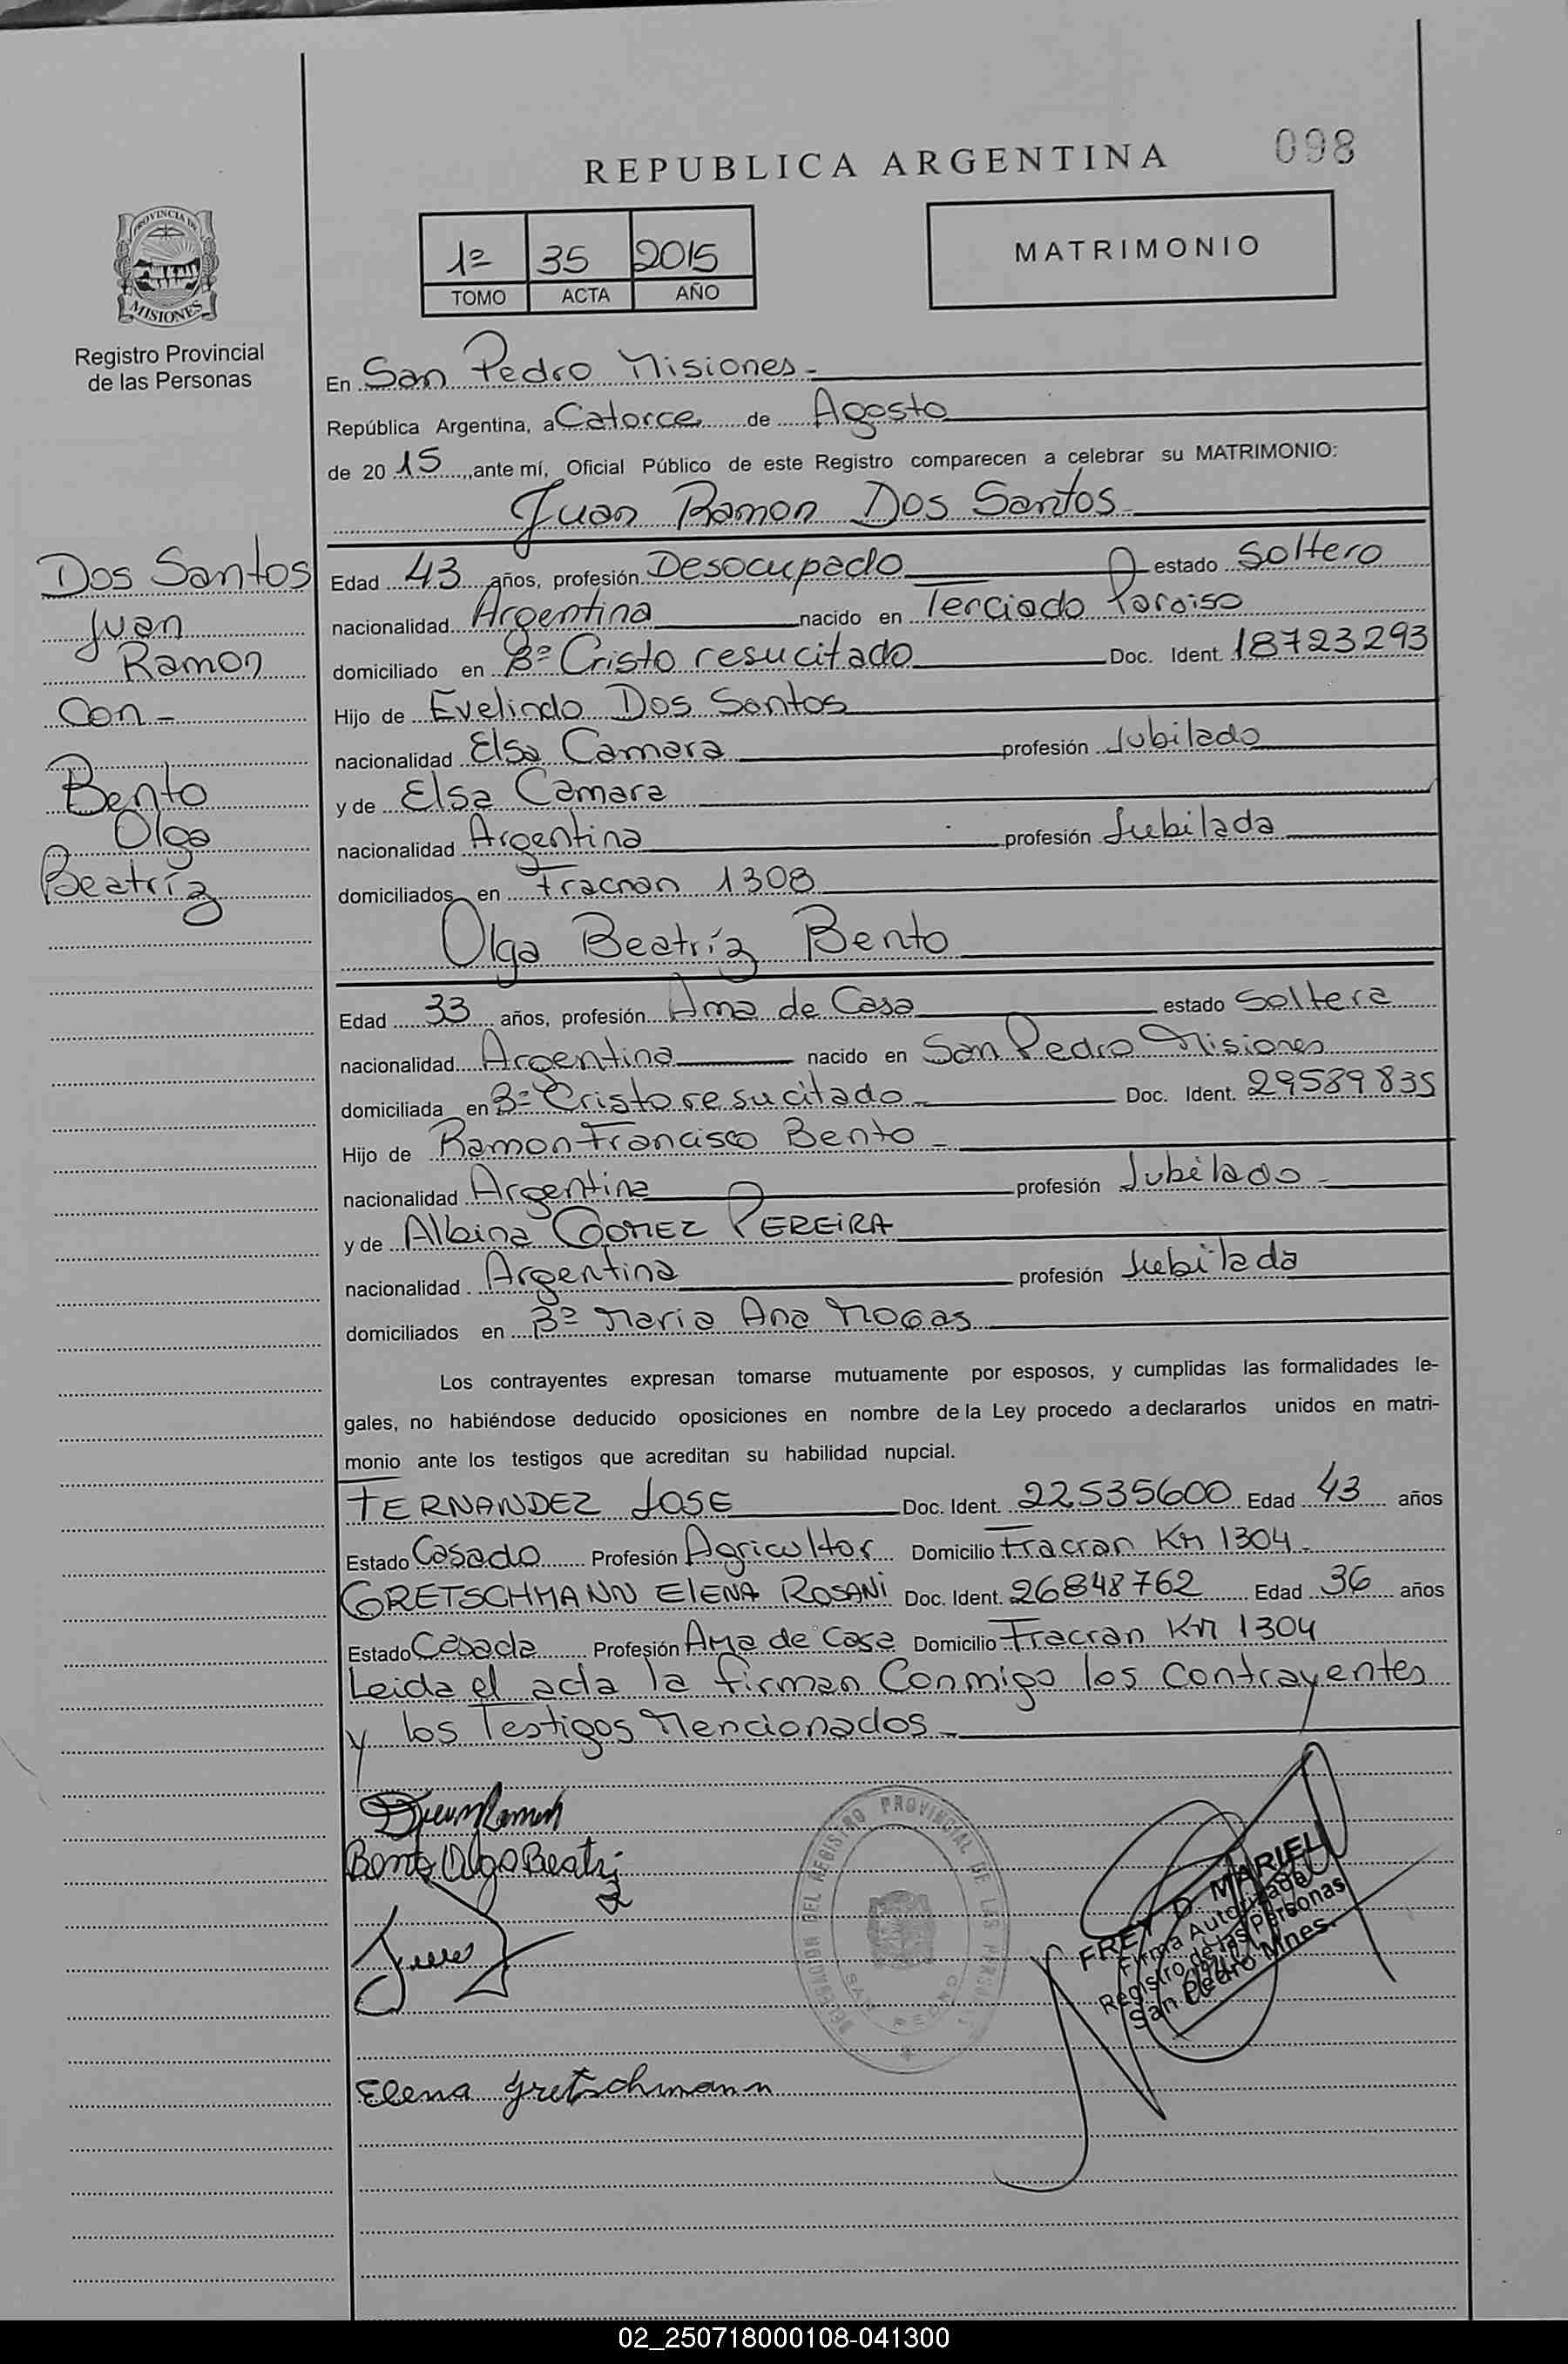 098
REPUBLICA ARGENTINA
PROVINCIA DE
MISIONES
Registro Provincial
de las Personas
1º 35 2015
TOMO ACTA AÑO
MATRIMONIO
En San Pedro Misiones
República Argentina, a Catorce de Agosto
de 20 15, ante mí, Oficial Público de este Registro comparecen a celebrar su MATRIMONIO:
Juan Ramon Dos Santos
Dos Santos
Juan
Ramon
Con
Bento
Olga
Beatríz
Edad 43 años, profesión Desocupado estado Soltero
nacionalidad Argentina nacido en Terciado Paraiso
domiciliado en Bº Cristo resucitado Doc. Ident. 18723293
Hijo de Evelindo Dos Santos
nacionalidad Elsa Camara profesión Jubilado
y de Elsa Camara
nacionalidad Argentina profesión Jubilada
domiciliados en Fracran 1308
Olga Beatríz Bento
Edad 33 años, profesión Ama de Casa estado Soltera
nacionalidad Argentina nacido en San Pedro Misiones
domiciliada en Bº Cristo resucitado Doc. Ident. 29589835
Hijo de Ramon Francisco Bento
nacionalidad Argentina profesión Jubilado
y de Albina GOMEZ PEREIRA
nacionalidad Argentina profesión Jubilada
domiciliados en Bº Maria Ana Mogas
Los contrayentes expresan tomarse mutuamente por esposos, y cumplidas las formalidades le-
gales, no habiéndose deducido oposiciones en nombre de la Ley procedo a declararlos unidos en matri-
monio ante los testigos que acreditan su habilidad nupcial.
FERNANDEZ JOSE Doc. Ident. 22535600 Edad 43 años
Estado Casado Profesión Agricultor Domicilio Fracran KM 1304
GRETSCHMANN ELENA ROSANI Doc. Ident. 26848762 Edad 36 años
Estado Casada Profesión Ama de Casa Domicilio Fracran KM 1304
Leida el acta la firman Conmigo los contrayentes
y los Testigos Mencionados
Juan Ramon
Bento Olga Beatriz
DELEGACION DEL REGISTRO PROVINCIAL DE LAS PERSONAS
SAN PEDRO
FREY D. MARIEL
Firma Autorizada
Registro de las Personas
San Pedro Mnes.
Elena Gretschmann
02_250718000108-041300